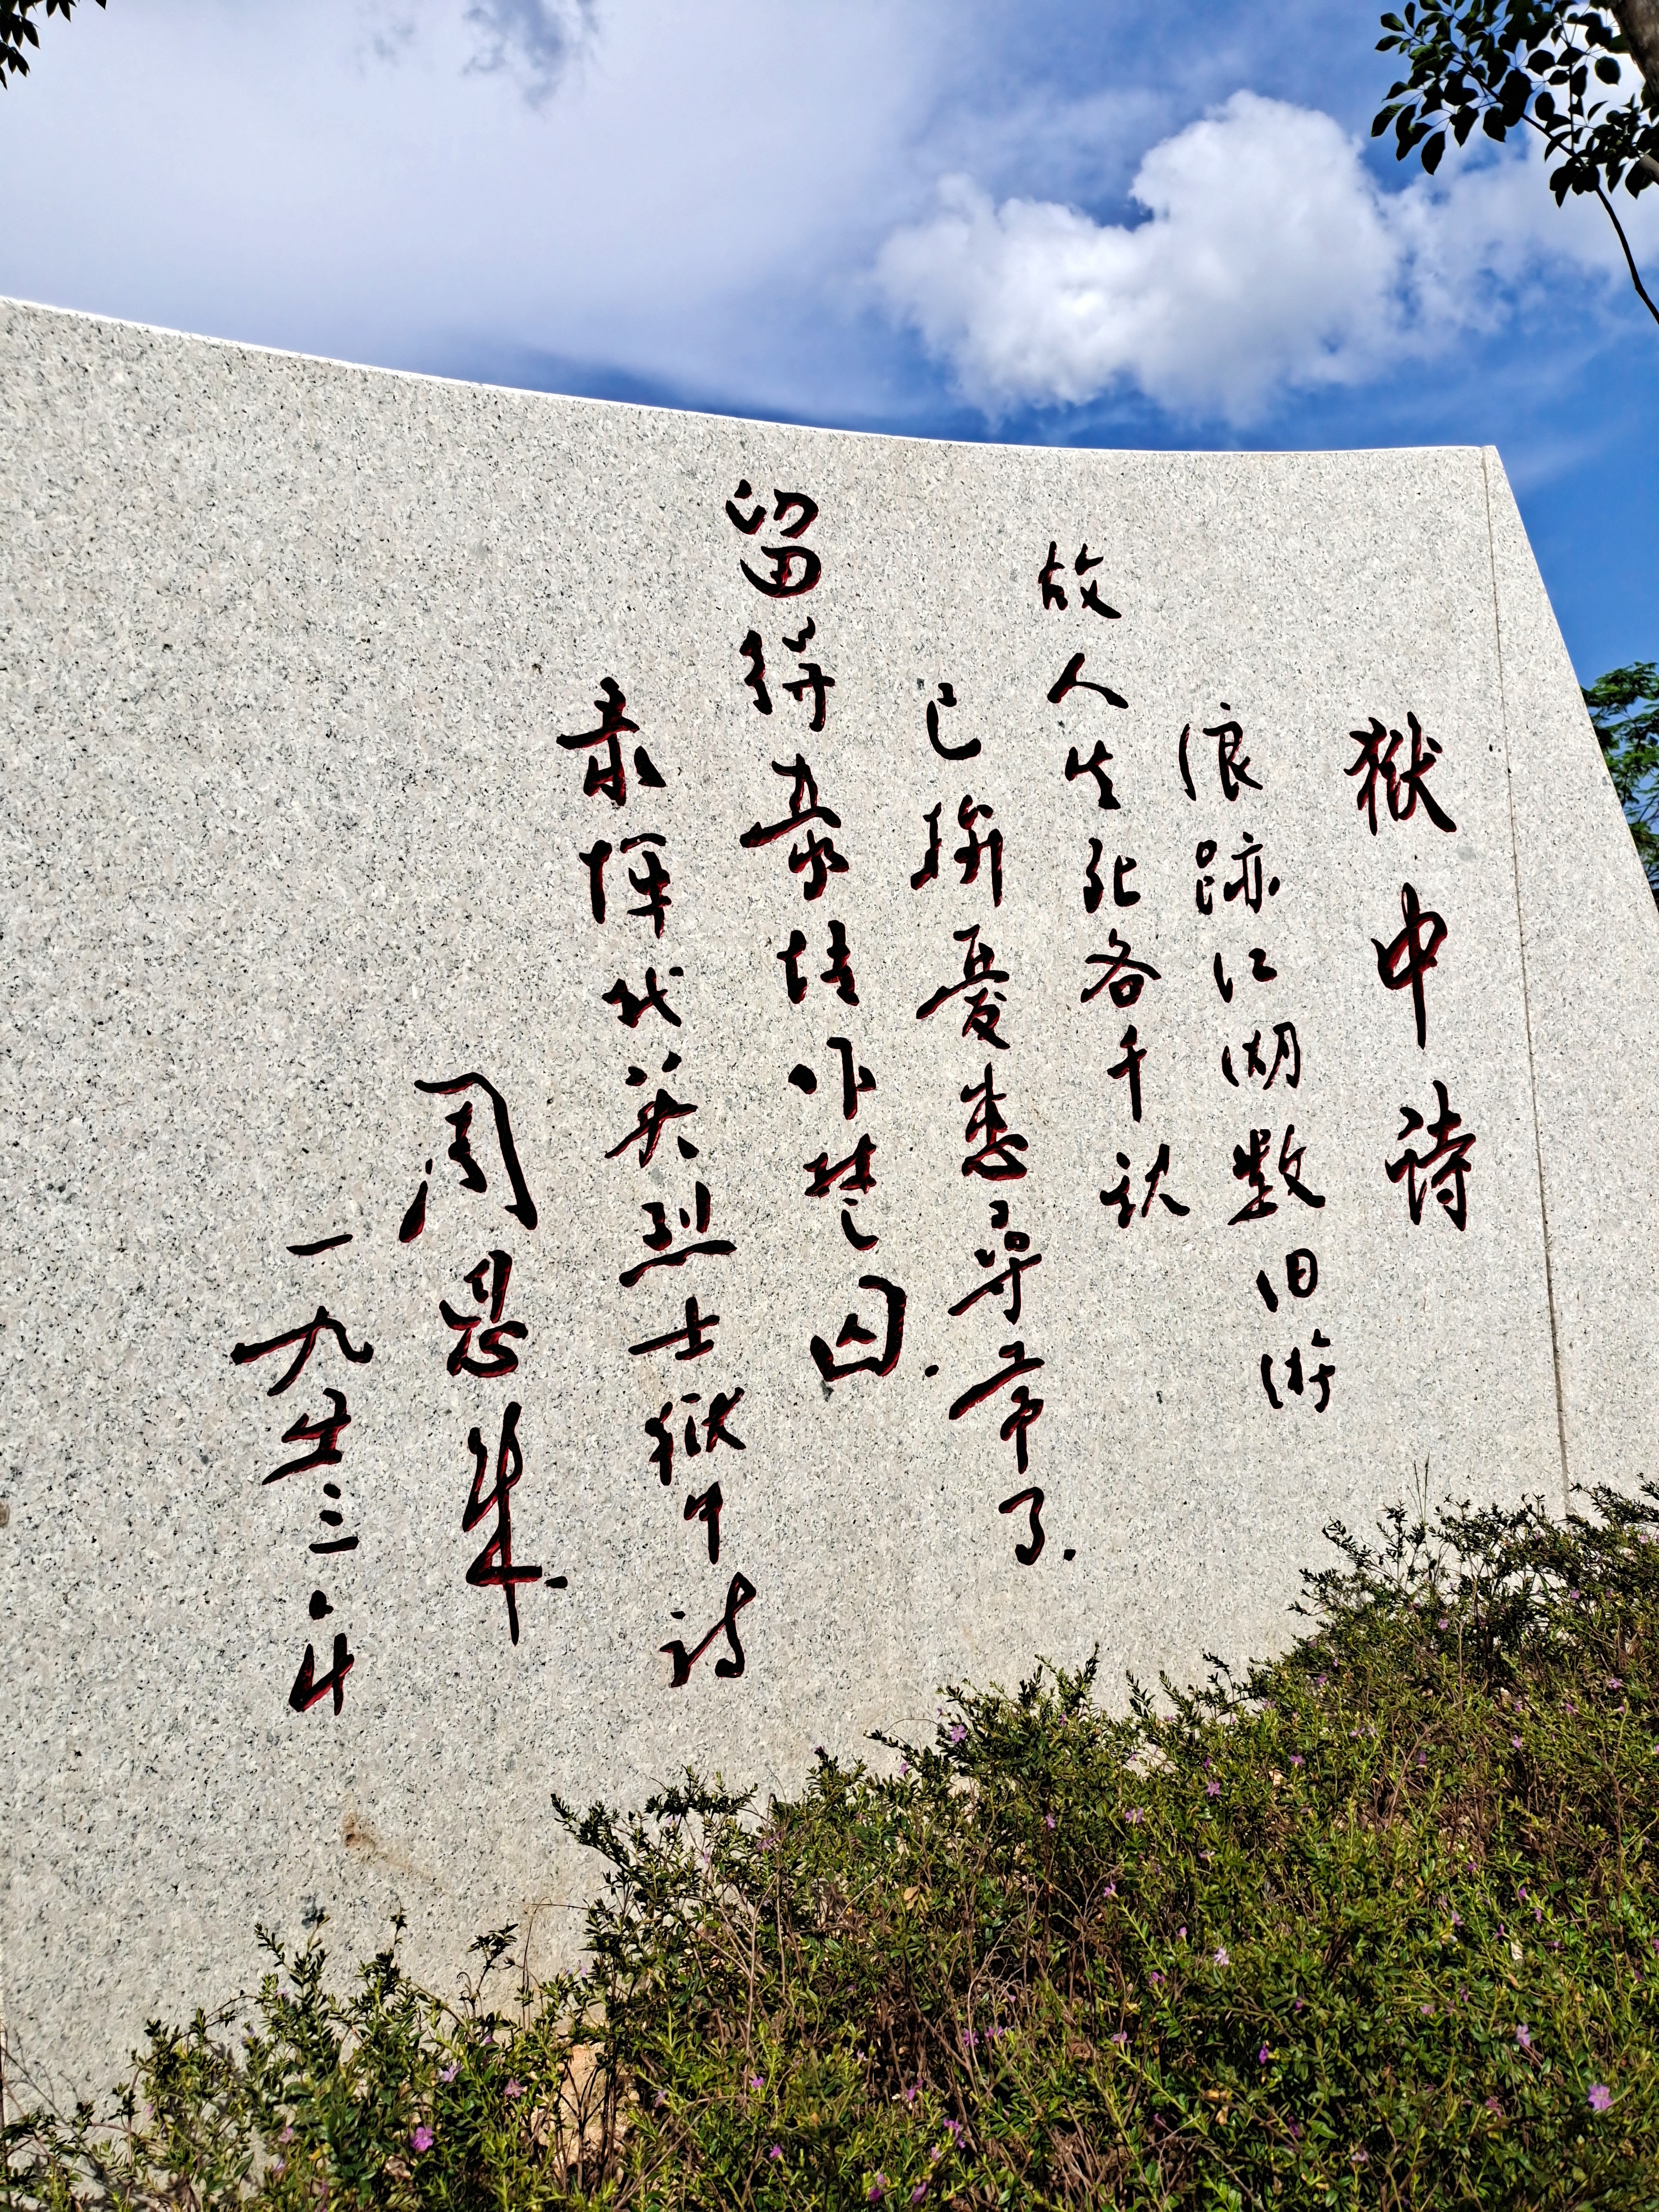 狱中诗
浪跡江湖数旧游
故人生死各千秋
已擯憂患尋常了.
留得豪情作楚囚.
录恽代英烈士狱中诗
周恩来.
一九五三.